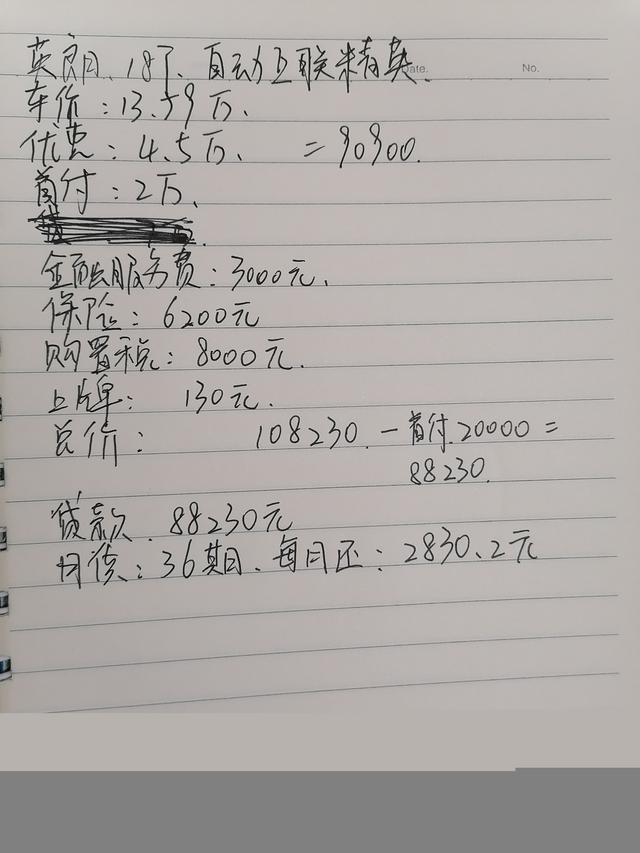 英朗、18T、自动互联精英.
Date.
No.
车价：13.59万.
优惠：4.5万、 = 90900.
首付：2万.
金融服务费：3000元.
保险：6200元
购置税：8000元.
上牌： 130元.
总价： 108230. - 首付.20000 =
88230.
贷款. 88230元
月供：36期、每月还：2830.2元